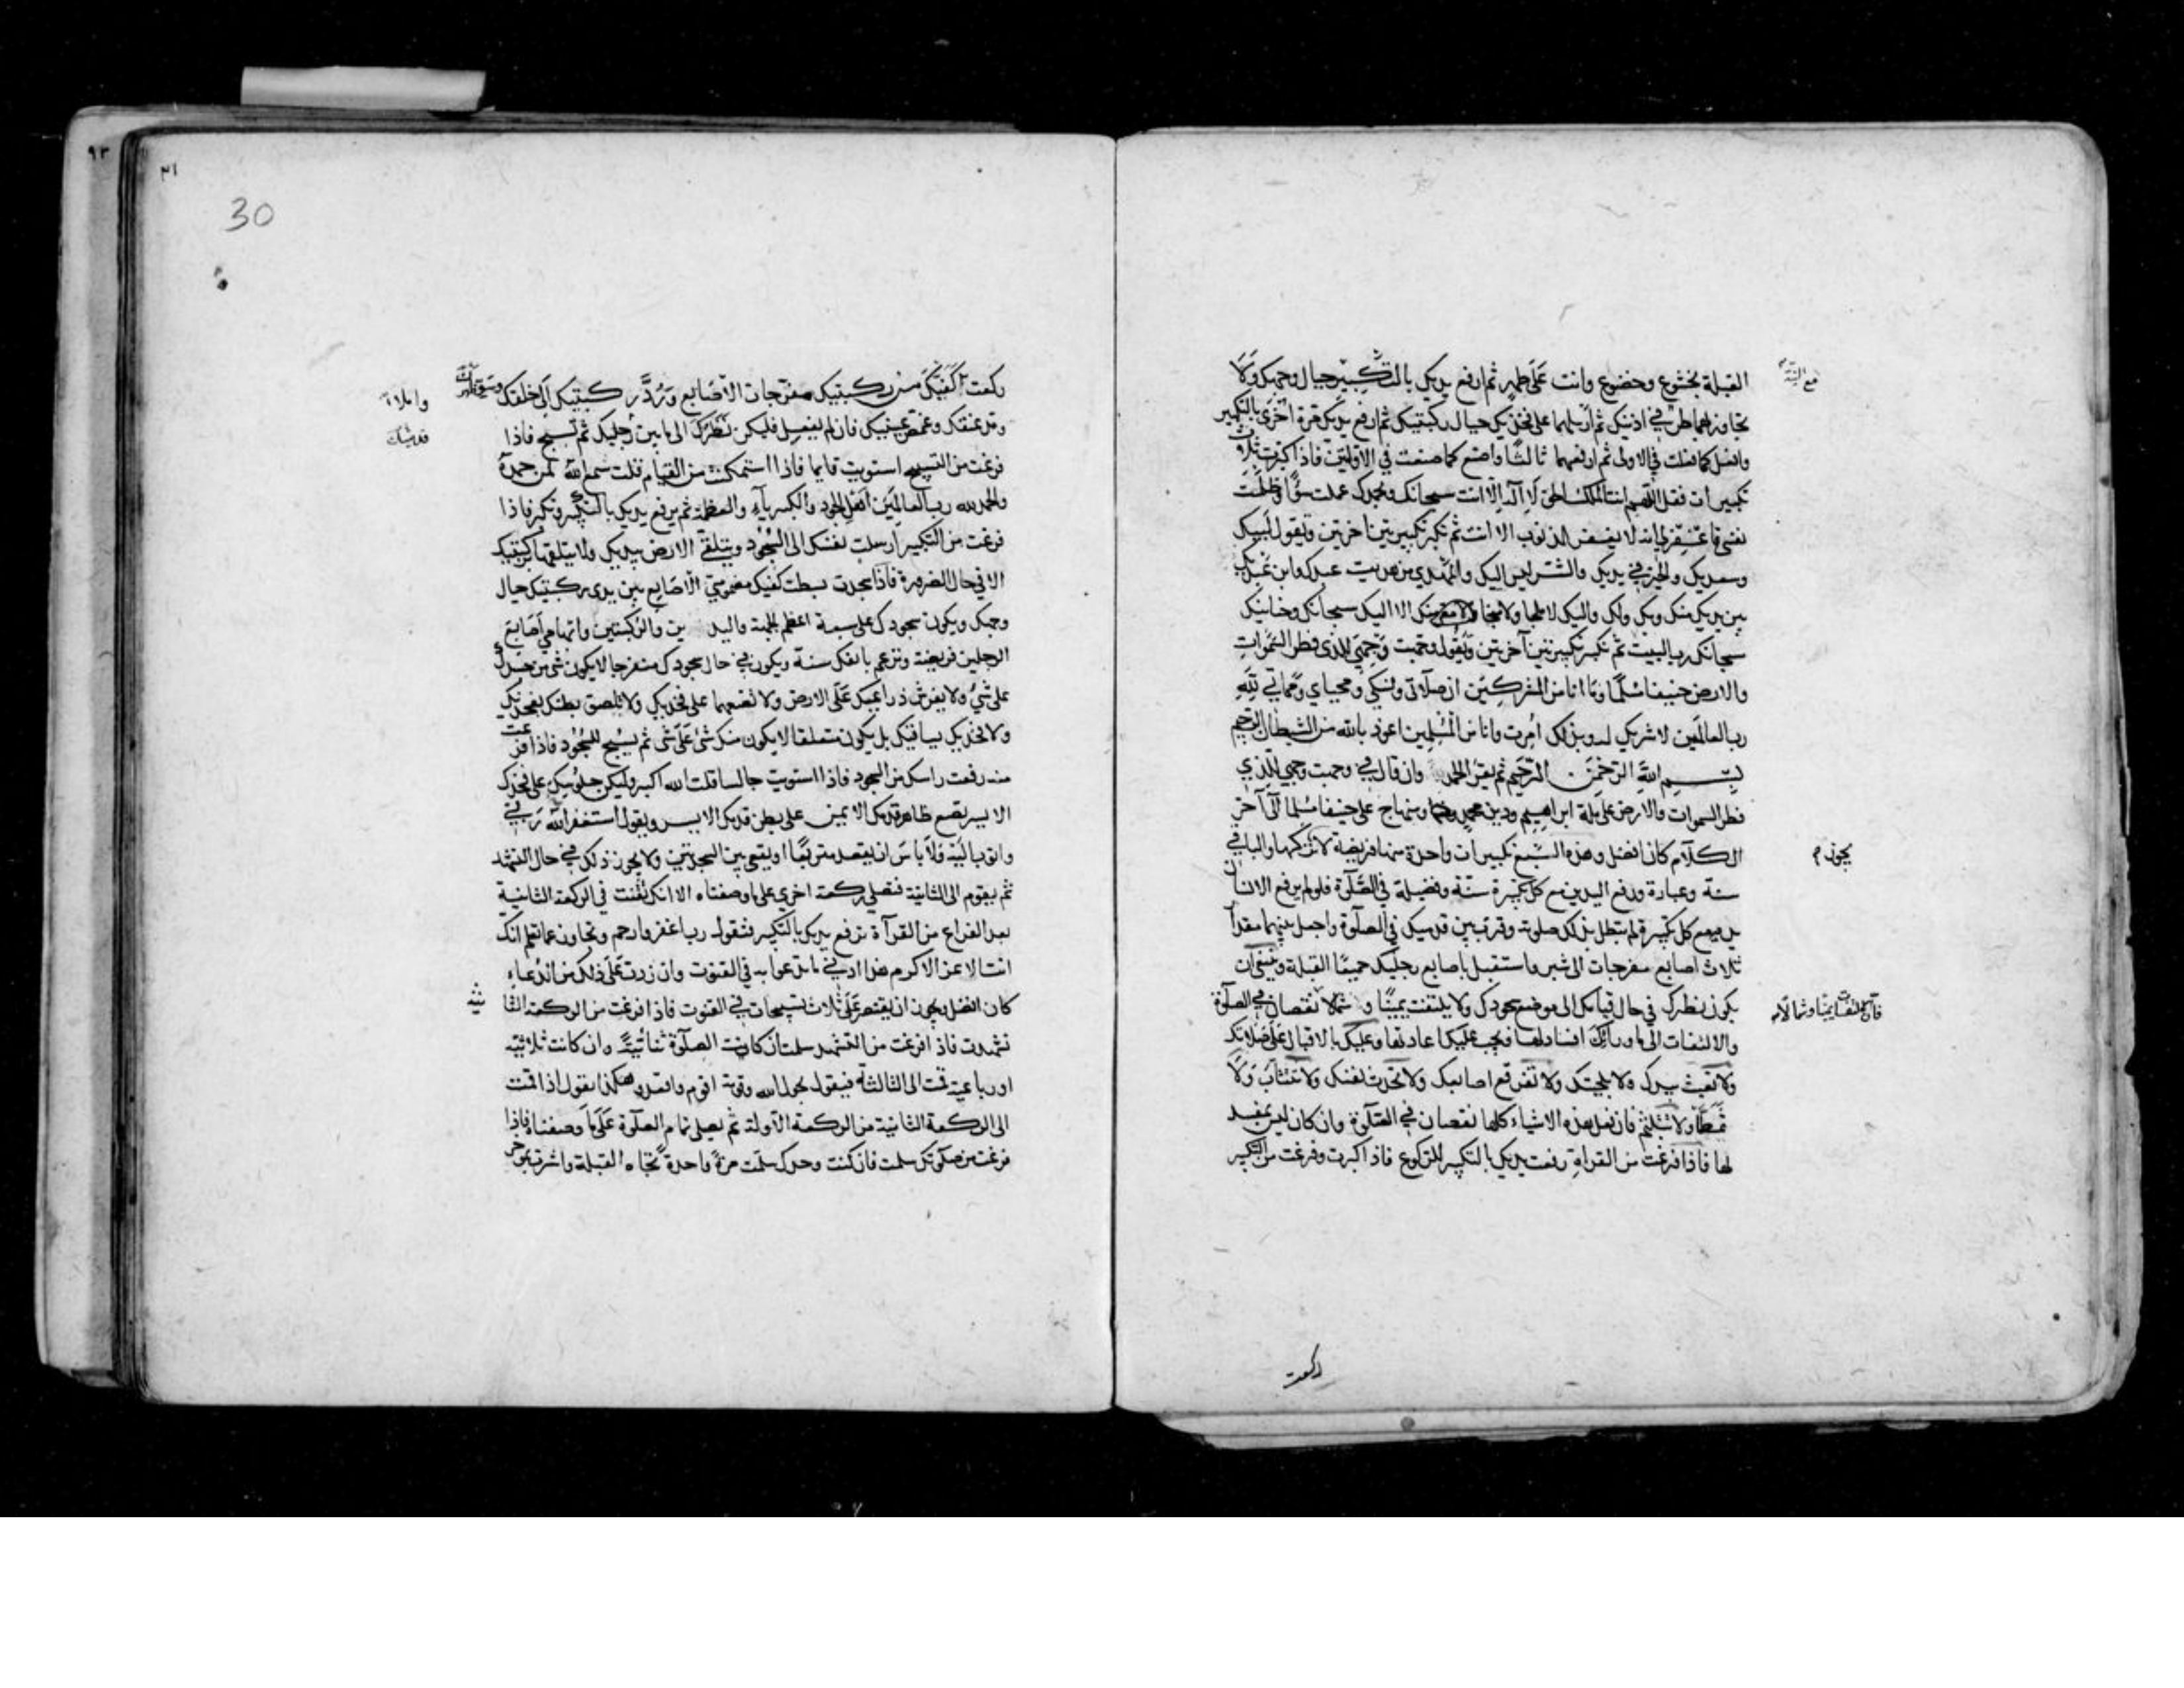 القبلة بخشوع وخضوع وانت على طهر ثم ارفع يديك بالتكبير حيال وجهك ولا
تجاوز بهما طرفي اذنيك ثم ارسلهما على فخذيك حيال ركبتيك ثم ارفع يديك مرة اخرى بالتكبير
وافعل كما فعلت في الاولى ثم ارفعهما ثالثا واصنع كما صنعت في الاولتين فاذا كبرت ثلاث
تكبيرات فقل اللهم انت الملك الحق لا اله الا انت سبحانك وبحمدك عملت سوءا وظلمت
نفسي فاغفر لي انه لا يغفر الذنوب الا انت ثم تكبر تكبيرتين اخرتين وتقول لبيك
وسعديك والخير في يديك والشر ليس اليك والمهدي من هديت عبدك وابن عبديك
بين يديك منك وبك ولك واليك لا ملجا ولا منجا ولا مفر منك الا اليك سبحانك وحنانيك
سبحانك رب البيت ثم تكبر تكبيرتين آخرتين وتقول وجهت وجهي للذي فطر السموات
والارض حنيفا مسلما وما انا من المشركين ان صلاتي ونسكي ومحياي ومماتي لله
رب العالمين لا شريك له وبذلك امرت وانا من المسلمين اعوذ بالله من الشيطان الرجيم
بسم الله الرحمن الرحيم ثم يقرا الحمد وان قال في وجهت وجهي للذي
فطر السموات والارض على ملة ابراهيم ودين محمد ومنهاج على حنيفا مسلما الى آخر
الكلام كان افضل وهذه السبع تكبيرات واحدة منها فريضة لا تركها والباقي
يجوز م
سنة وعبارة ورفع اليدين مع كل تكبيرة سنة وفضيلة في الصلوة فلو لم يرفع الانسان
يديه مع كل تكبيرة لم تبطل بذلك صلوته وفرق بين قدميك في الصلوة واجعل بينهما مقدار
ثلاث اصابع مفرجات الى شبر واستقبل باصابع رجليك جميعا القبلة وينبغي ان
يكون نظرك في حال قيامك الى موضع سجودك ولا يلتفت يمينا و شمالا نقصان في الصلوة
فان التفات يمينا وشمالا م
والالتفات الى ما ورائك افساد لها فيجب عليك اعادتها وعليك بالاقبال على صلاتك
ولا تعبث بيدك ولا بلحيتك ولا تفرقع اصابعك ولا تحدث نفسك ولا تتثاب ولا
تمطا ولا تتلثم فان فعل هذه الاشياء كلها نقصان في الصلوة وان كان ليس بمفسد
لها فاذا فرغت من القراءة رفعت يديك بالتكبير للركوع فاذا كبرت وفرغت من التكبير
ركعت
٩٣
٣١
30
ركعت كفيك من ركبتيك مفرجات الاصابع وترد ركبتيك الى خلفك وسو ظهرك
واملاء
ومد عنقك وغمض عينيك فان لم يفعل فليكن نظرك الى ما بين رجليك ثم تسبح فاذا
فرغت من التسبيح استويت قايما فاذا استمكنت من القيام قلت سمع الله لمن حمده
والحمد لله رب العالمين اهل الجود والكبرياء والعظمة ثم يرفع يديك بالتكبير وتكبر فاذا
فرغت من التكبير ارسلت نفسك الى السجود ويتلقى الارض بيديك ولا يتلقها بركبتيك
الا في حال الضرورة فاذا سجدت بسطت كفيك مضمومتي الاصابع بين يدى ركبتيك حيال
وجهك ويكون سجودك على سبعة اعظم الجبهة واليدين والركبتين وابهامي اصابع
الرجلين فريضة وترغم بانفك سنة ويكون في حال سجودك منفرجا لا يكون شئ من جسدك
على شئ ولا يفرش ذراعيك على الارض ولا تضعهما على فخذيك ولا يلصق بطنك بفخذيك
ولا فخذيك بساقيك بل يكون متعلقا لا يكون منك شئ على شئ ثم يسبح للسجود فاذا فرغت
منه رفعت راسك من السجود فاذا استويت جالسا قلت الله اكبر وليكن جلوسك على فخذك
الايسر يضع ظاهر قدمك الايمن على بطن قدمك الايسر ويقول استغفر الله ربي
واتوب اليه ولا باس ان يقعد متربعا او يقعى بين السجدتين ولا يجوز ذلك في حال التشهد
ثم يقوم الى الثانية فتصلي ركعة اخري على ما وصفناه الا انك تقنت في الركعة الثانية
بعد الفراغ من القرآءة ترفع يديك بالتكبير فتقول رب اغفر وارحم وتجاوز عما تعلم انك
انت الاعز الاكرم هذا ادنى ما تدعوا به في القنوت وان زدت على ذلك من الدعاء
كان افضل ويجوز ان يقتصر على ثلاث تسبيحات في القنوت فاذا فرغت من الركعة الثا
نيه
تشهدت فاذا فرغت من التشهد سلمت ان كانت الصلوة ثنائية وان كانت ثلاثية
او رباعية قمت الى الثالثة فيقول بحول الله وقوته اقوم واقعد وهكذا يقول اذا قمت
الى الركعة الثانية من الركعة الاولة ثم يصلي تمام الصلوة على ما وصفناه فاذا
فرغت من صلوتك سلمت فان كنت وحدك سلمت مرة واحدة تجاه القبلة واشرت بموخر